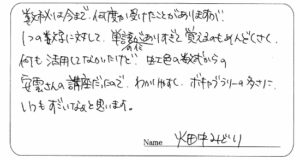 数秘は今まで、何度か受けたことがありますが
1つの数字に対して、単語がありすぎて覚えるのもめんどくさく、
何も活用してなかったけど、虹色の数すからの
安雲さんの講座だったので、わかりやすく、ボキャブラリーの多さに
いつもすごいなぁと思います。
Name 火田中みどり